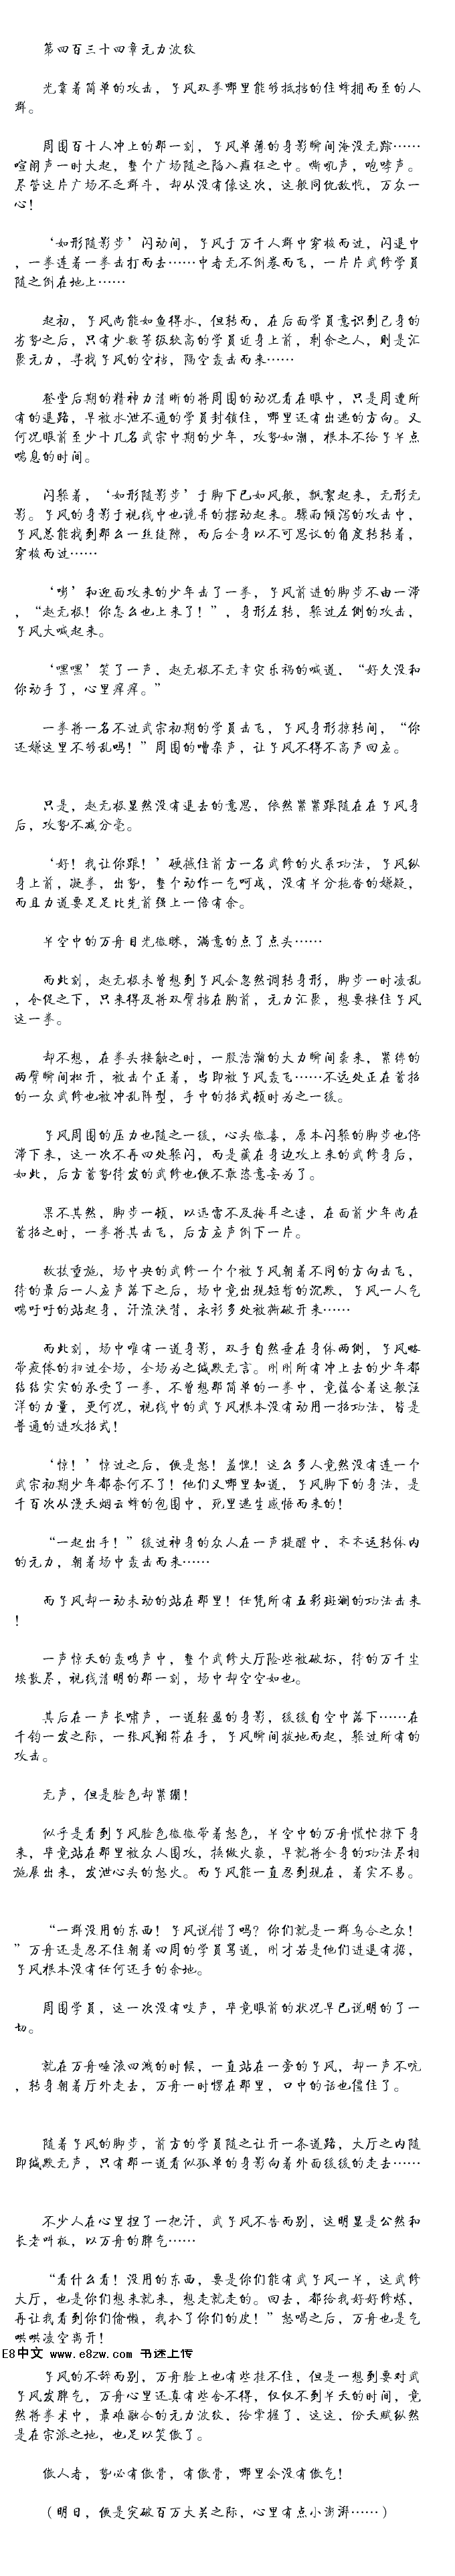 第四百三十四章元力波纹
光靠着简单的攻击，予风双拳哪里能够抵挡的住蜂拥而至的人
群。
周围百十人冲上的那一刻，予风单薄的身影瞬间淹没无踪……
喧闹声一时大起，整个广场随之陷入癫狂之中。嘶吼声，咆哮声。
尽管这片广场不乏群斗，却从没有像这次，这般同仇敌忾，万众一
心！
‘如形随影步’闪动间，予风于万千人群中穿梭而过，闪退中
，一拳连着一拳击打而去……中者无不倒卷而飞，一片片武修学员
随之倒在地上……
起初，予风尚能如鱼得水，但转而，在后面学员意识到己身的
劣势之后，只有少数等级较高的学员近身上前，剩余之人，则是汇
聚元力，寻找予风的空档，隔空轰击而来……
登堂后期的精神力清晰的将周围的动况看在眼中，只是周遭所
有的退路，早被水泄不通的学员封锁住，哪里还有出逃的方向。又
何况眼前至少十几名武宗中期的少年，攻势如潮，根本不给予半点
喘息的时间。
闪躲着，‘如形随影步’于脚下已如风般，飘絮起来，无形无
影。予风的身影于视线中也诡异的摆动起来。骤雨倾泻的攻击中，
予风总能找到那么一丝缝隙，而后全身以不可思议的角度转转着，
穿梭而过……
‘嘭’和迎面攻来的少年击了一拳，予风前进的脚步不由一滞
，“赵无极！你怎么也上来了！”，身形左转，躲过左侧的攻击，
予风大喊起来。
‘嘿嘿’笑了一声，赵无极不无幸灾乐祸的喊道，“好久没和
你动手了，心里痒痒。”
一拳将一名不过武宗初期的学员击飞，予风身形掠转间，“你
还嫌这里不够乱吗！”周围的嘈杂声，让予风不得不高声回应。
只是，赵无极显然没有退去的意思，依然紧紧跟随在在予风身
后，攻势不减分毫。
‘好！我让你跟！’硬撼住前方一名武修的火系功法，予风纵
身上前，凝拳，出势，整个动作一气呵成，没有半分拖沓的嫌疑，
而且力道要足足比先前强上一倍有余。
半空中的万舟目光微眯，满意的点了点头……
而此刻，赵无极未曾想到予风会忽然调转身形，脚步一时凌乱
，仓促之下，只来得及将双臂挡在胸前，元力汇聚，想要接住予风
这一拳。
却不想，在拳头接触之时，一股浩瀚的大力瞬间袭来，紧绷的
两臂瞬间松开，被击个正着，当即被予风轰飞……不远处正在蓄招
的一众武修也被冲乱阵型，手中的招式顿时为之一缓。
予风周围的压力也随之一缓，心头微喜，原本闪躲的脚步也停
滞下来，这一次不再四处躲闪，而是藏在身边攻上来的武修身后，
如此，后方蓄势待发的武修也便不敢恣意妄为了。
果不其然，脚步一顿，以迅雷不及掩耳之速，在面前少年尚在
蓄招之时，一拳将其击飞，后方应声倒下一片。
故技重施，场中央的武修一个个被予风朝着不同的方向击飞，
待的最后一人应声落下之后，场中竟出现短暂的沉默，予风一人气
喘吁吁的站起身，汗流浃背，衣衫多处被撕破开来……
而此刻，场中唯有一道身影，双手自然垂在身体两侧，予风略
带疲倦的扫过全场，全场为之缄默无言。刚刚所有冲上去的少年都
结结实实的承受了一拳，不曾想那简单的一拳中，竟蕴含着这般汪
洋的力量，更何况，视线中的武予风根本没有动用一招功法，皆是
普通的进攻招式！
‘惊！’惊过之后，便是怒！羞愧！这么多人竟然没有连一个
武宗初期少年都奈何不了！他们又哪里知道，予风脚下的身法，是
千百次从漫天烟云蜂的包围中，死里逃生感悟而来的！
“一起出手！”缓过神身的众人在一声提醒中，齐齐运转体内
的元力，朝着场中轰击而来……
而予风却一动未动的站在那里！任凭所有五彩斑斓的功法击来
！
一声惊天的轰鸣声中，整个武修大厅险些被破坏，待的万千尘
埃散尽，视线清明的那一刻，场中却空空如也。
其后在一声长啸声，一道轻盈的身影，缓缓自空中落下……在
千钧一发之际，一张风翔符在手，予风瞬间拔地而起，躲过所有的
攻击。
无声，但是脸色却紧绷！
似乎是看到予风脸色微微带着怒色，半空中的万舟慌忙掠下身
来，毕竟站在那里被众人围攻，换做火袅，早就将全身的功法尽相
施展出来，发泄心头的怒火。而予风能一直忍到现在，着实不易。
“一群没用的东西！予风说错了吗？你们就是一群乌合之众！
”万舟还是忍不住朝着四周的学员骂道，刚才若是他们进退有据，
予风根本没有任何还手的余地。
周围学员，这一次没有吱声，毕竟眼前的状况早已说明的了一
切。
就在万舟唾液四溅的时候，一直站在一旁的予风，却一声不吭
，转身朝着厅外走去，万舟一时愣在那里，口中的话也僵住了。
随着予风的脚步，前方的学员随之让开一条道路，大厅之内随
即缄默无声，只有那一道看似孤单的身影向着外面缓缓的走去……
不少人在心里担了一把汗，武予风不告而别，这明显是公然和
长老叫板，以万舟的脾气……
“看什么看！没用的东西，要是你们能有武予风一半，这武修
大厅，也是你们想来就来，想走就走的。回去，都给我好好修炼，
再让我看到你们偷懒，我扒了你们的皮！”怒喝之后，万舟也是气
哄哄凌空离开！
E8中文 www.e8zw.com 书迷上传
予风的不辞而别，万舟脸上也有些挂不住，但是一想到要对武
予风发脾气，万舟心里还真有些舍不得，仅仅不到半天的时间，竟
然将拳术中，最难融合的元力波纹，给掌握了，这这，份天赋纵然
是在宗派之地，也足以笑傲了。
傲人者，势必有傲骨，有傲骨，哪里会没有傲气！
（明日，便是突破百万大关之际，心里有点小澎湃……）